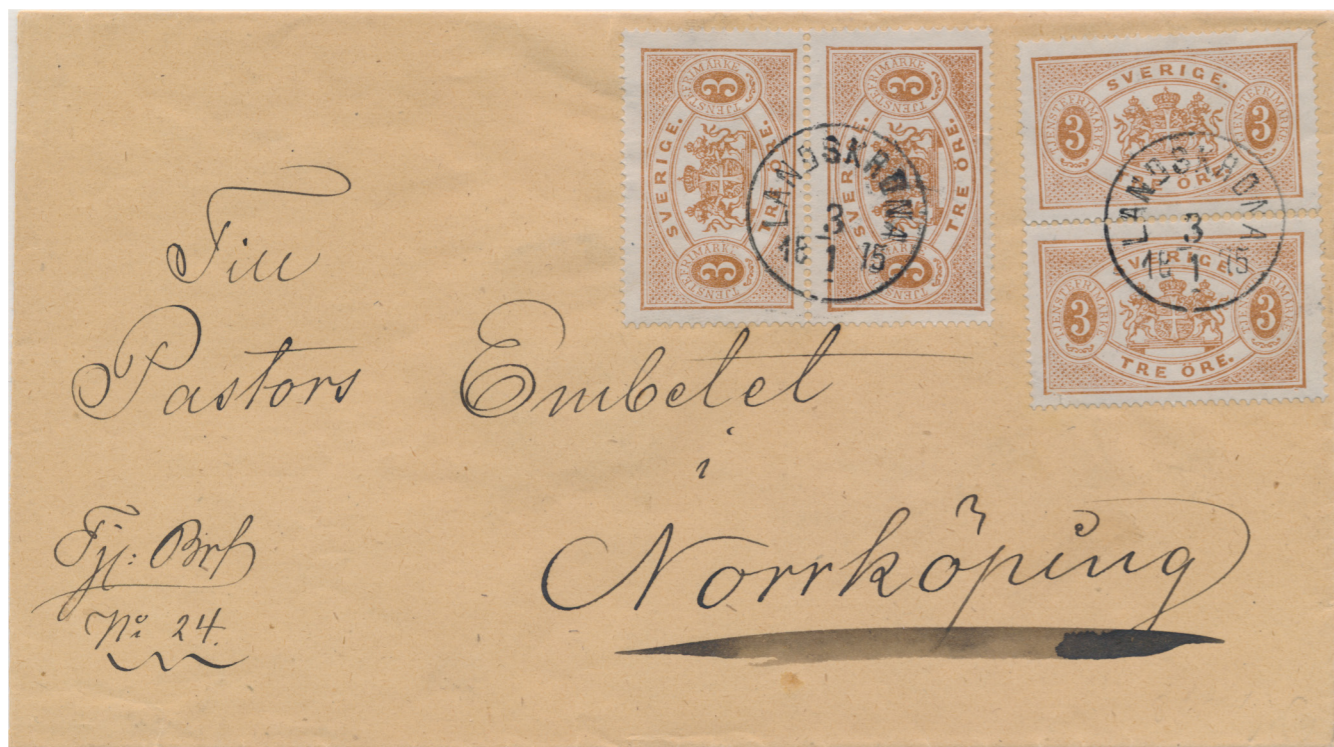 SVERIGE.
TJENSTEFRIMÄRKE
3
3
TRE ÖRE.
SVERIGE.
TJENSTEFRIMÄRKE
3
3
TRE ÖRE.
LANDSKRONA
3
1
SVERIGE.
TJENSTEFRIMÄRKE
3
3
TRE ÖRE.
SVERIGE.
TJENSTEFRIMÄRKE
3
3
TRE ÖRE.
LANDSKRONA
3
1
Till
Pastors Embetet
i
Norrköping
Tj: Brf
No 24.